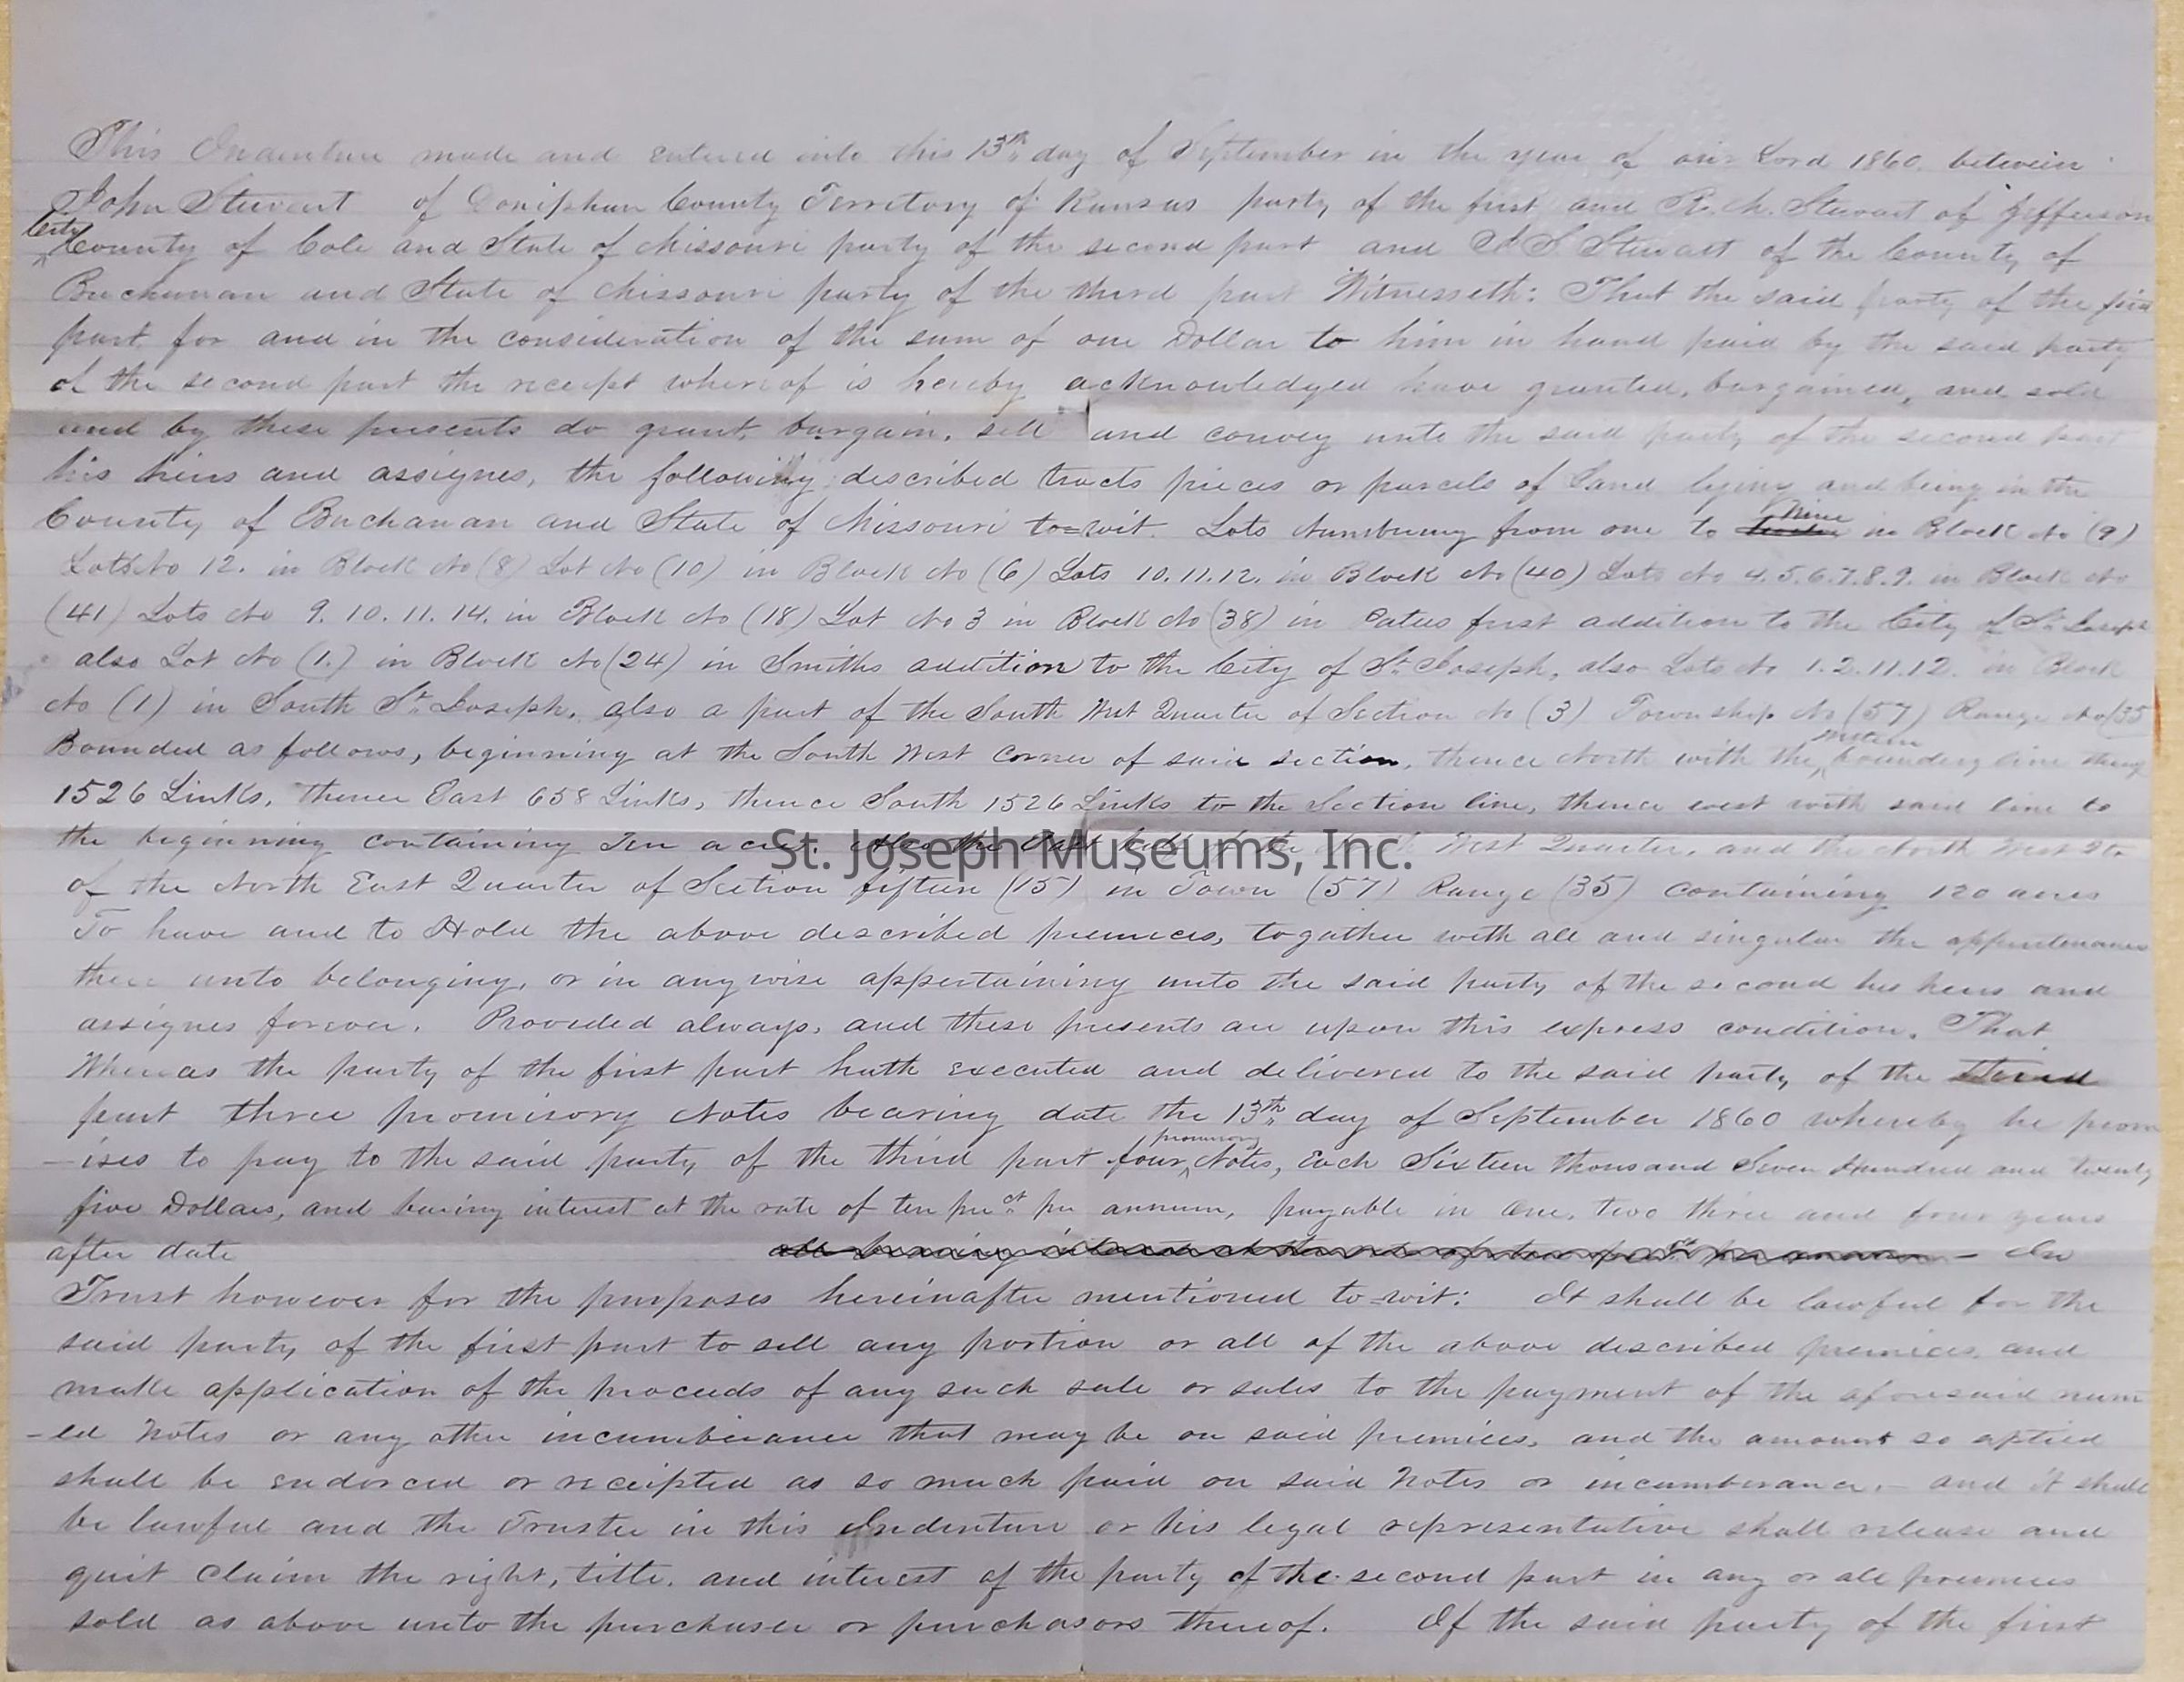 This Indenture made and entered into this 13th day of September in the year of our Lord 1860 between
John Stewart of Doniphan County Territory of Kansas party of the first and R. M. Stewart of Jefferson
City County of Cole and State of Missouri party of the second part and A S. Stewart of the County of
Buchanan and State of Missouri party of the third part Witnesseth: That the said party of the first
part for and in the consideration of the sum of one Dollar to him in hand paid by the said party
of the second part the receipt whereof is hereby acknowledged have granted, bargained, and sold
and by these presents do grant, bargain, sell and convey unto the said party of the second part
his heirs and assignes, the following described tracts pieces or parcels of Land lying and being in the
County of Buchanan and State of Missouri to=wit. Lots Numbering from one to Nine in Block No (9)
Lots No 12. in Block No (8) Lot No (10) in Block No (6) Lots 10.11.12. in Block No (40) Lots No 4.5.6.7.8.9. in Block No
(41) Lots No 9. 10. 11. 14. in Block No (18) Lot No 3 in Block No (38) in Patees first addition to the City of St Joseph
also Lot No (1.) in Block No (24) in Smiths addition to the City of St Joseph, also Lots No 1.2.11.12. in Block
No (1) in South St Joseph, also a part of the South West Quarter of Section No (3) Township No (57) Range No (35
Bounded as follows, beginning at the South West corner of said section, thence North with the western boundery line
1526 Links, thence East 658 Links, thence South 1526 Links to the Section line, thence west with said line to
the beginning containing Ten acres. Also the East half of the North West Quarter, and the North West Qr
St. Joseph Museums, Inc.
of the North East Quarter of Section fifteen (15) in Town (57) Range (35) containing 120 acres
To have and to Hold the above described premices, togather with all and singular the appurtenances
there unto belonging, or in any wise appertaining unto the said party of the second his heirs and
assignes forever. Provided always, and these presents are upon this express condition. That
Whereas the party of the first part hath executed and delivered to the said party of the third
part three promisory Notes bearing date the 13th day of September 1860 whereby he prom
-ises to pay to the said party of the third part four promisory Notes, Each Sixteen thousand Seven Hundred and twenty
five Dollars, and baring interest at the rate of ten per ct per annum, payable in one, two three and four years
after date all bearing interest at the rate of ten per ct per annum - In
Trust however for the purposes hereinafter mentioned to-wit: It shall be lawful for the
said party of the first part to sell any portion or all of the above described premices and
make application of the proceeds of any such sale or sales to the payment of the aforesaid nam
-ed Notes or any other incumberance that may be on said premices, and the amount so aplied
shall be endorced or receipted as so much paid on said Notes or incumberance, - and it shall
be lawful and the Trustee in this Indenture or his legal representative shall release and
quit claim the right, title, and interest of the party of the second part in any or all premices
sold as above unto the purchaser or purchasors thereof. If the said party of the first